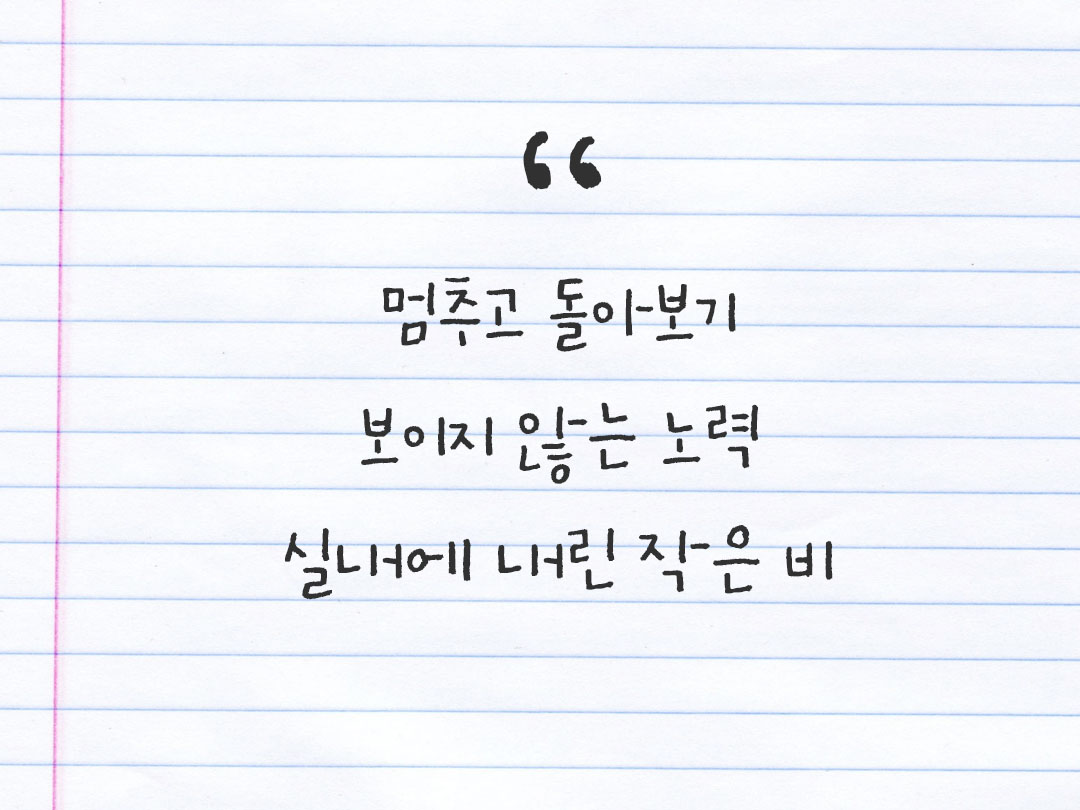 “
멈추고 돌아보기
보이지 않는 노력
실내에 내린 작은 비